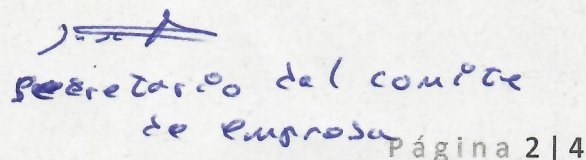 secretario del comite
de empresa
Página 2|4